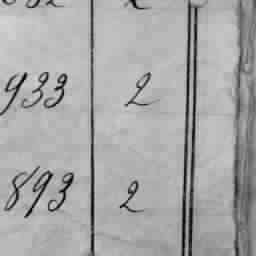 933 2
893 2